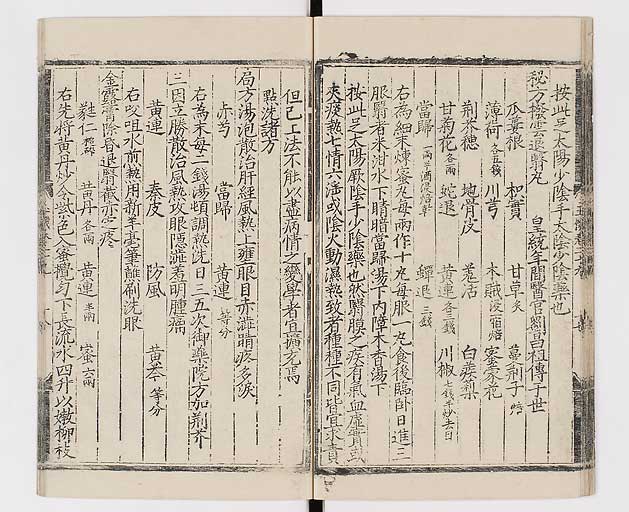 按此足太陽少陰手太陰少陰藥也
秘方撥雲退翳丸 皇統年間醫官劉昌祖傳于世
瓜蔞根 枳實 甘草炙 蔓荊子
薄荷各五錢 川芎 木賊浸 蜜蒙花
荊芥穗 地骨皮 羌活 白蒺藜
甘菊花各兩 蛇退 黃連各三錢 川椒七錢半炒去目
當歸一兩半酒浸焙幹 蟬退三錢
右為細末煉蜜丸每兩作十丸每服一丸食後臨臥日進三
服翳者米泔水下睛暗當歸湯下內障木香湯下
按此足太陽厥陰手少陰藥也然翳膜之疾有氣血虛實或
夾痰熱七情六淫或陰火動濕熱致者種種不同皆宜求責
但已上法不能以盡病情之變學者宜擴充焉
點洗諸方
局方湯泡散治肝經風熱上壅眼目赤澁睛疼多淚
赤芍 當歸 黃連等分
右為末每二錢湯頓調熱洗日三五次御藥院方加荊芥
三因立勝散治風熱攻眼隱澁羞明腫痛
黃連 秦皮 防風 黃芩等分
右㕮咀水煎熱用新羊毫筆蘸刷洗眼
金露膏除昏退翳截赤定疼
蕤仁 黃丹各兩 黃連半兩 蜜六兩
右先將黃丹炒令紫色入蜜攪勻下長流水四升以嫩柳枝